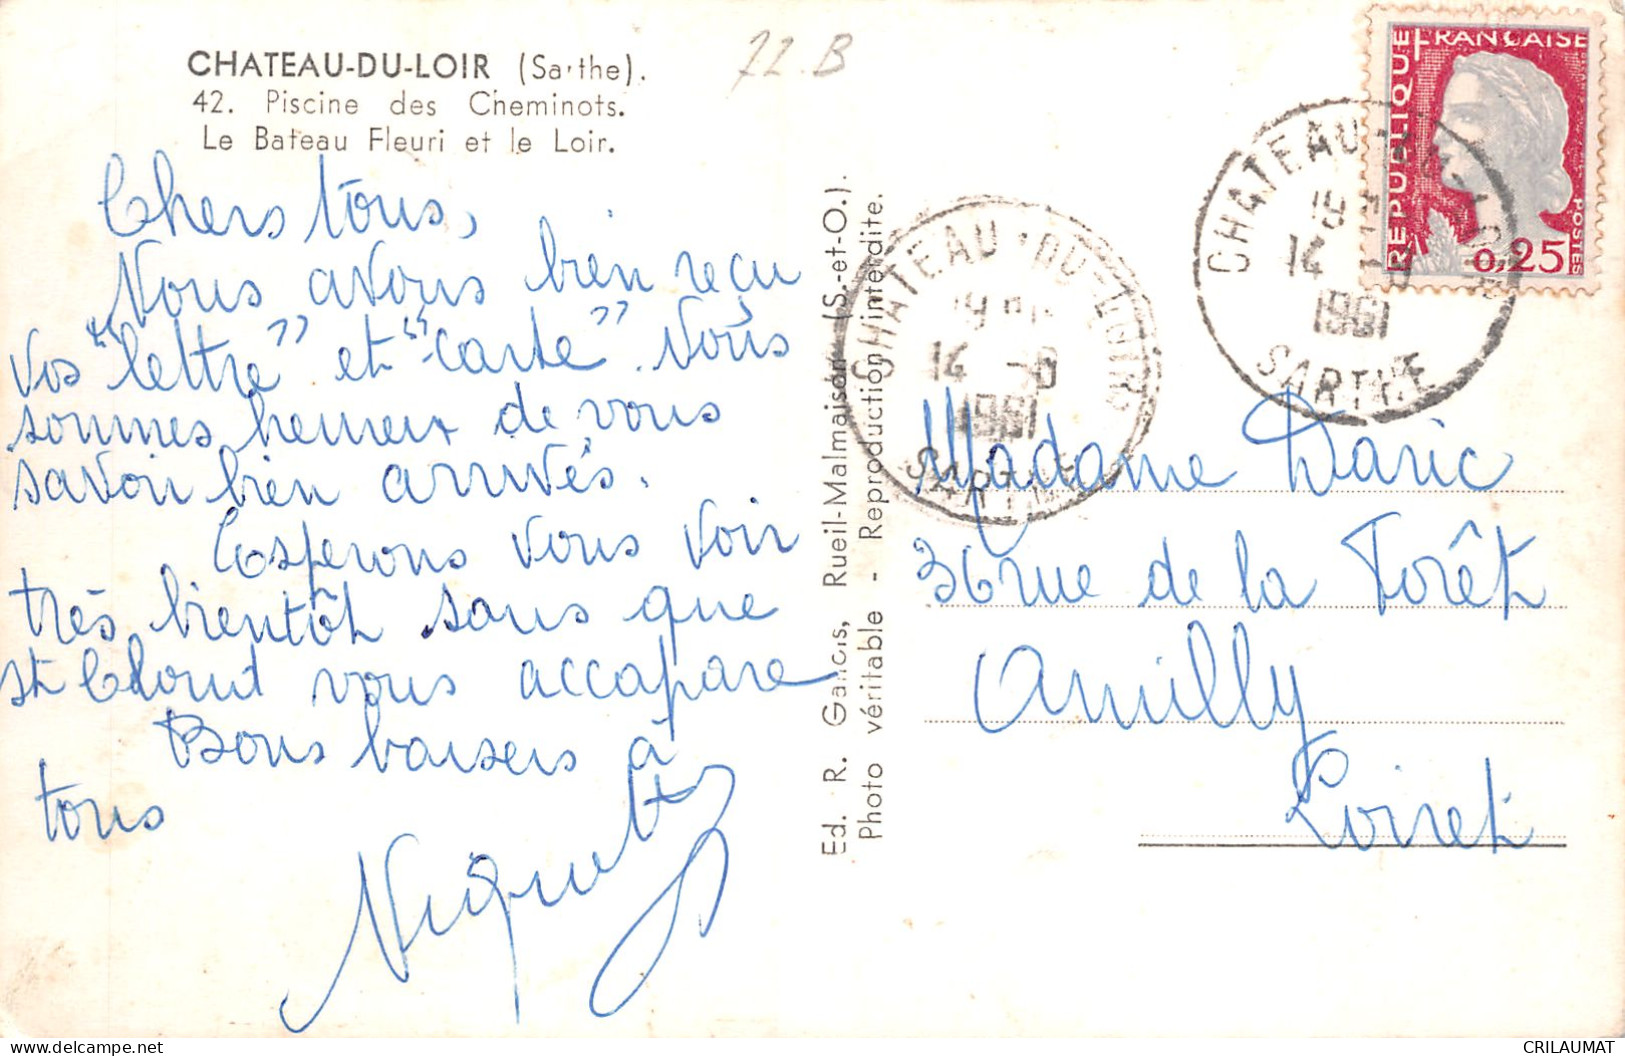 CHATEAU-DU-LOIR (Sarthe).
42. Piscine des Cheminots.
Le Bateau Fleuri et le Loir.
72.B
Chers tous,
Nous avons bien reçu
vos "lettre" et "carte". Nous
sommes heureux de vous
savoir bien arrivés.
Espérons vous voir
très bientôt sans que
St Cloud vous accapare
Bons baisers à
tous
Ed. R. Gancis, Rueil-Malmaison (S.-et-O.).
Photo véritable - Reproduction interdite.
CHATEAU-DU-LOIR
19
14
1961
SARTHE
CHATEAU-DU-LOIR
19
14
1961
SARTHE
REPUBLIQUE FRANÇAISE
POSTES
0,25
Madame Daric
36 rue de la Forêt
Amilly
Loiret
CRILAUMAT